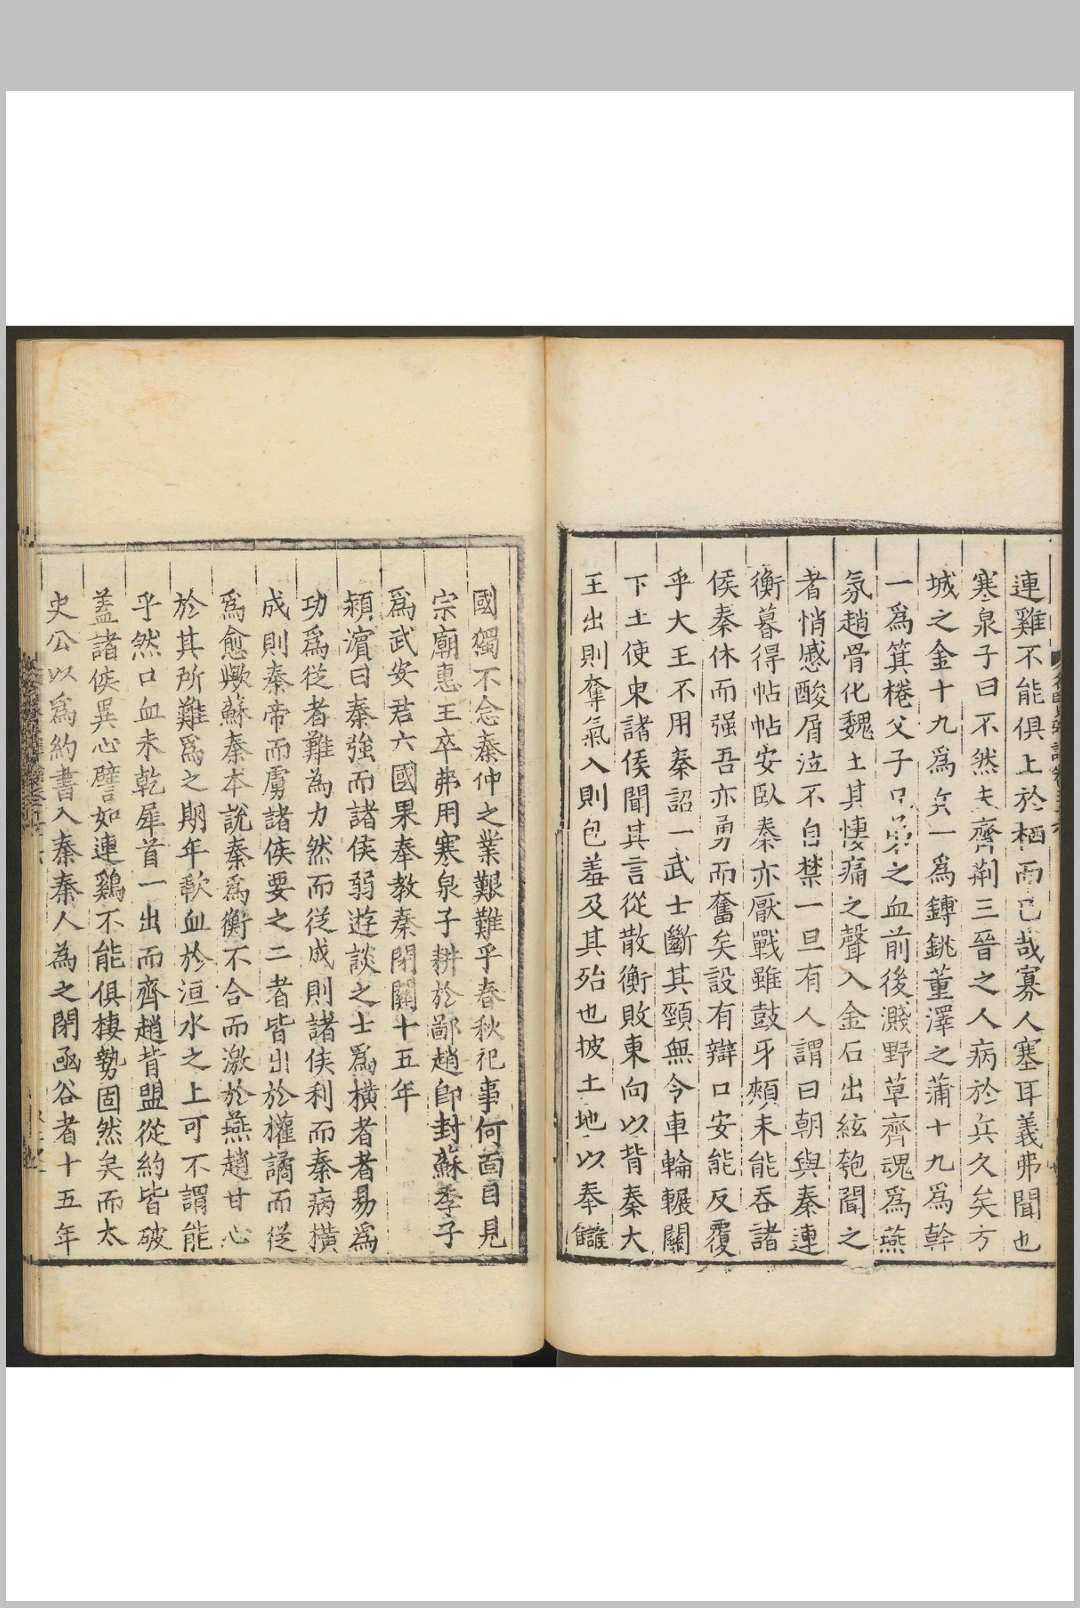 連雞不能俱上於栖而已哉寡人塞耳義弗聞也
寒泉子曰不然夫齊荊三晉之人病於兵久矣方
城之金十九為兵一為鎛銚董澤之蒲十九為幹
一為箕棬父子兄弟之血前後濺野草齊魂為燕
氛趙骨化魏土其悽痛之聲入金石出絃匏聞之
者悄慼酸屑泣不自禁一旦有人謂曰朝與秦連
衡暮得帖帖安臥秦亦厭戰雖鼓牙頰未能吞諸
侯秦休而强吾亦勇而奮矣設有辯口安能反覆
乎大王不用秦詔一武士斷其頸無令車輪輾關
下土使東諸侯聞其言從散衡敗東向以背秦大
王出則奪氣入則包羞及其殆也披土地以奉讎
國獨不念秦仲之業艱難乎春秋祀事何面目見
宗廟惠王卒弗用寒泉子耕於鄙趙卽封蘇季子
爲武安君六國果奉教秦閉關十五年
潁濱曰秦強而諸侯弱遊談之士爲橫者易爲
功爲從者難為力然而從成則諸侯利而秦病橫
成則秦帝而虜諸侯要之二者皆出於權譎而從
爲愈歟蘇秦本說秦爲衡不合而激於燕趙甘心
於其所難爲之期年歃血於洹水之上可不謂能
乎然口血未乾犀首一出而齊趙背盟從約皆破
盖諸侯異心譬如連鷄不能俱棲勢固然矣而太
史公以爲約書入秦秦人為之閉函谷者十五年